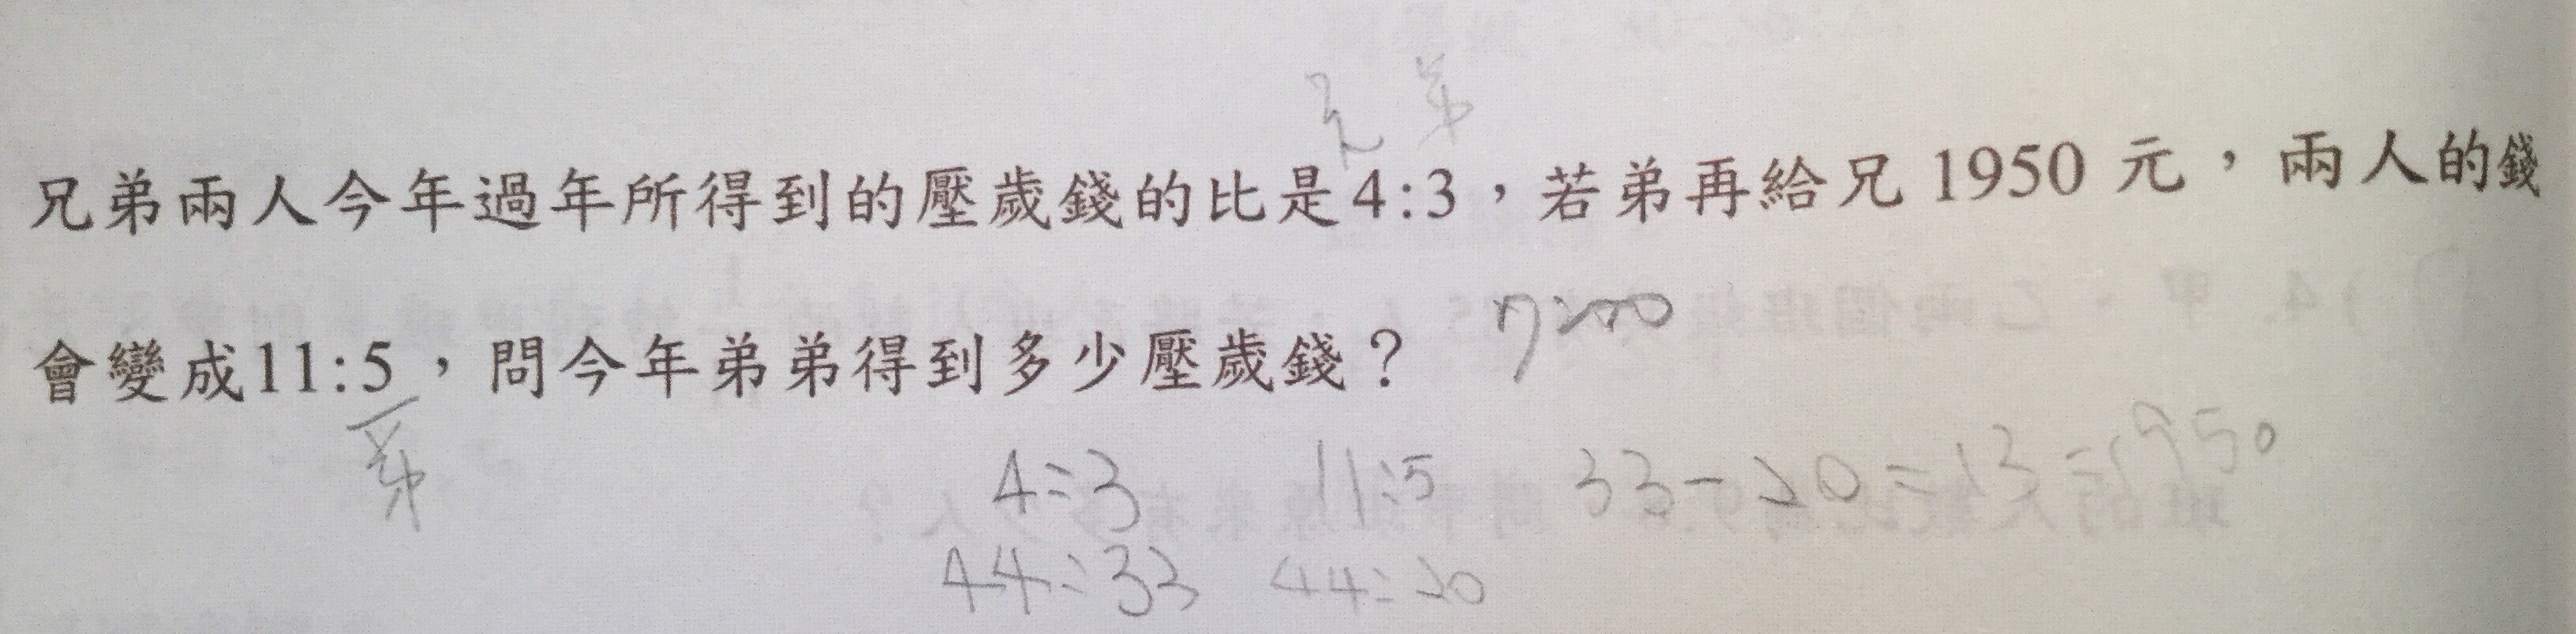 兄 弟
兄弟兩人今年過年所得到的壓歲錢的比是4:3，若弟再給兄 1950 元，兩人的錢
會變成11:5，問今年弟弟得到多少壓歲錢？ 7200
弟
4:3 11:5 33-20=13=1950
44:33 44:20